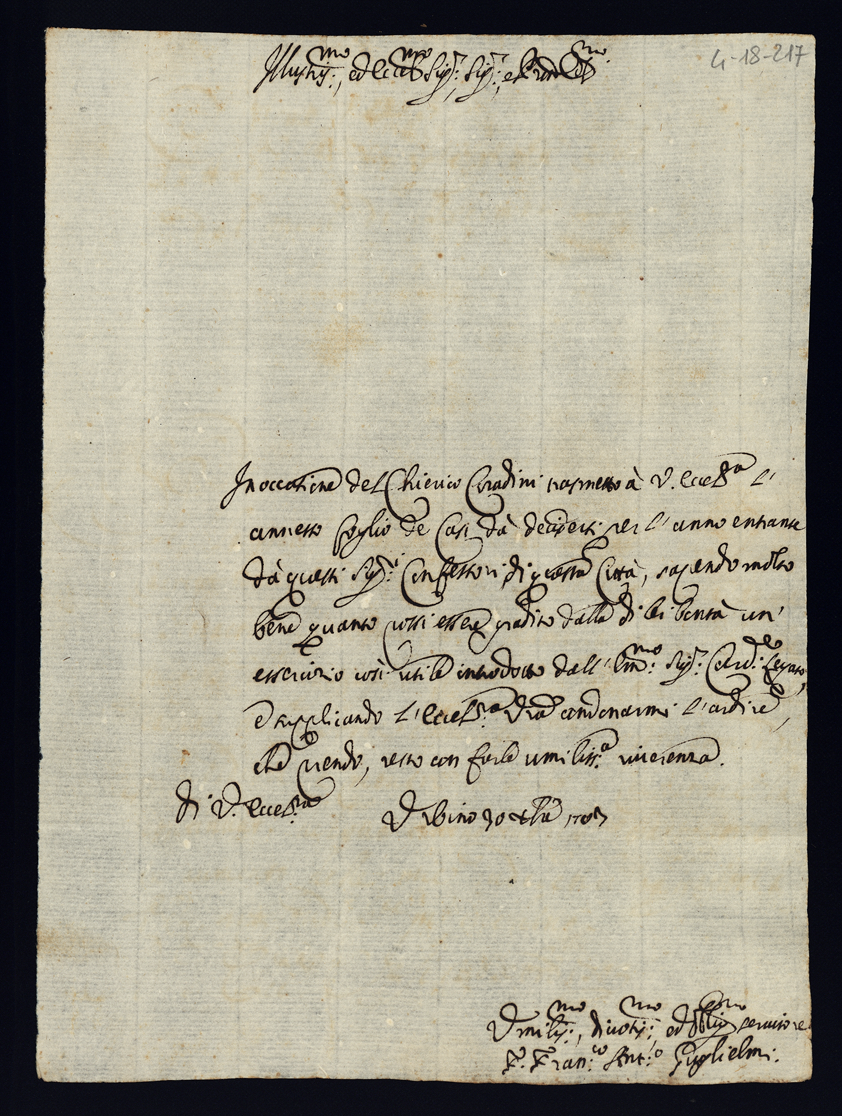 4-18-217
Illustr:mo, ed Ecc:mo Sig:r, Sig:r, e Pron Col:mo
In occasione del Chierico Coradini trasmetto à V. Eccell:za l'
annesso foglio de Casi dà decidersi per l'anno entrante
dà questi Sig:ri Confessori di questa Città, sapendo molto
bene quanto possi essere gradito dalla di lei bontà un'
essercizio così utile introdotto dall' Em:mo Sig:r Card:le Legato,
e supplicando l'Eccell:za Vra condonarmi l'ardire,
che prendo, resto con farle umiliss:a riverenza.
Di V. Eccell:za
Urbino 30 1707
Umiliss:mo, divotiss:mo, ed obblig:mo servitore
F. Fran:co Ant:o Guglielmi.